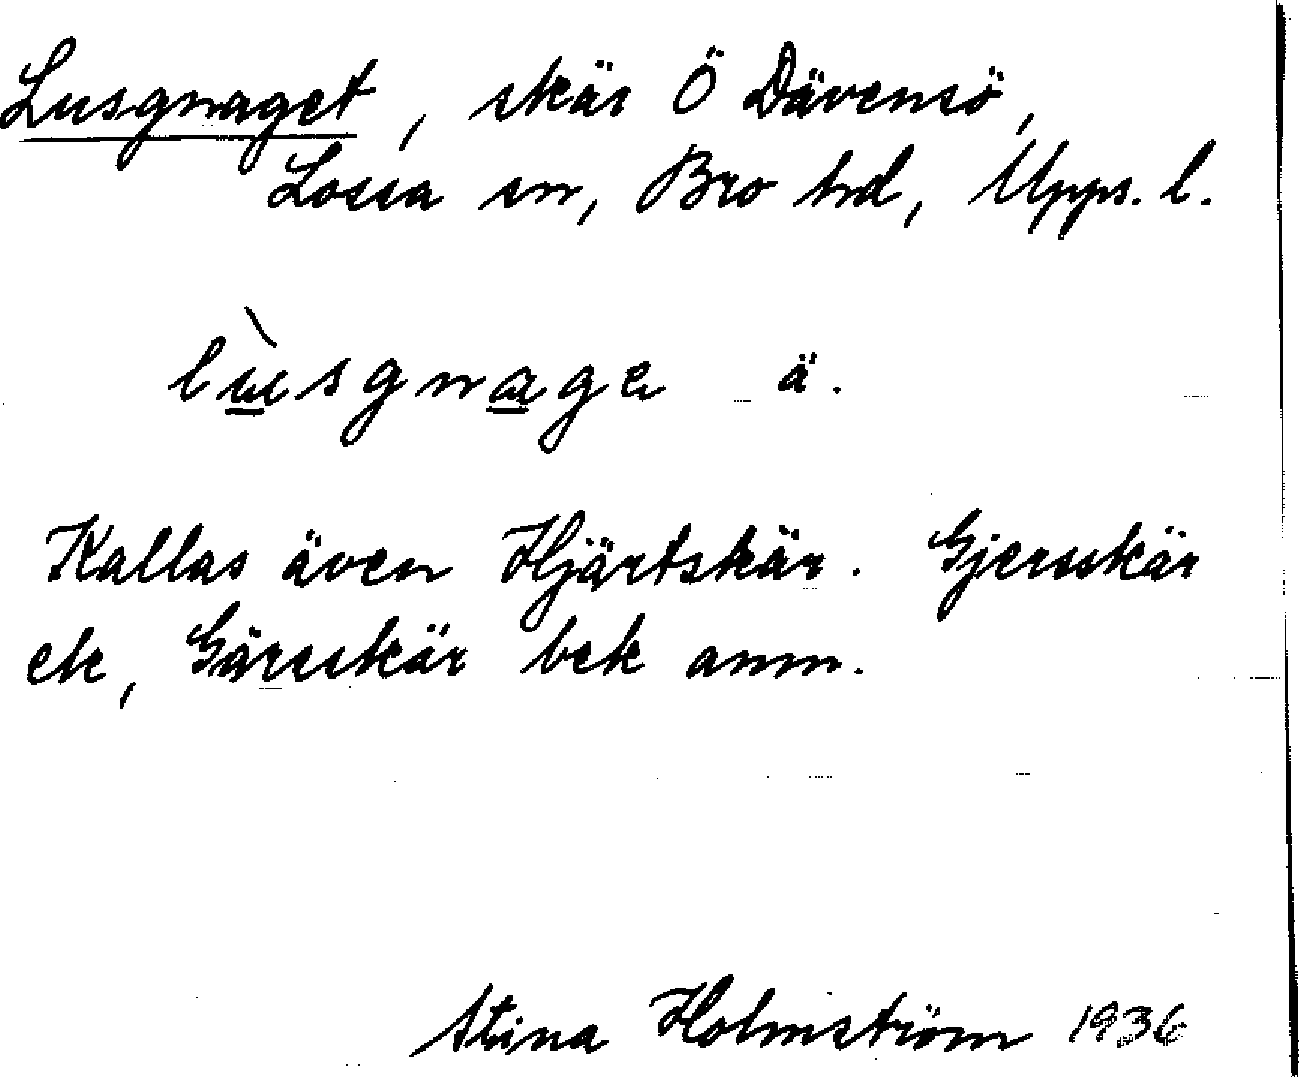 Lusgnaget, skär Ö Dävensö,
Lossa sn, Bro hd, Upps. l.
lùsgnage ä.
Kallas även Hjärtskär. Gjersskär
ek, Gärsskär bek anm.
Stina Holmström 1936